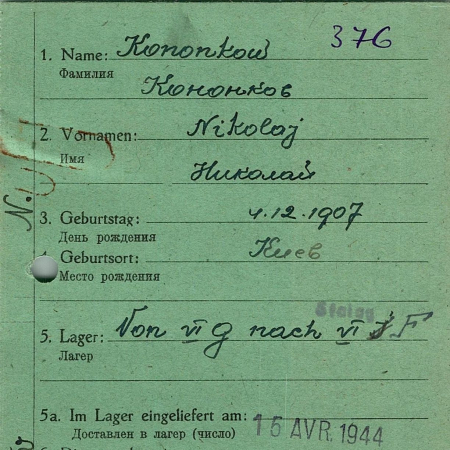 376
1. Name: Kononkow
Фамилия
Кононков
2. Vornamen: Nikolaj
Имя
Николай
3. Geburtstag: 4.12.1907
День рождения
4. Geburtsort: Киев
Место рождения
Stalag
5. Lager: Von VI G nach VI F
Лагер
5a. Im Lager eingeliefert am:
Доставлен в лагер (число) 15 AVR. 1944